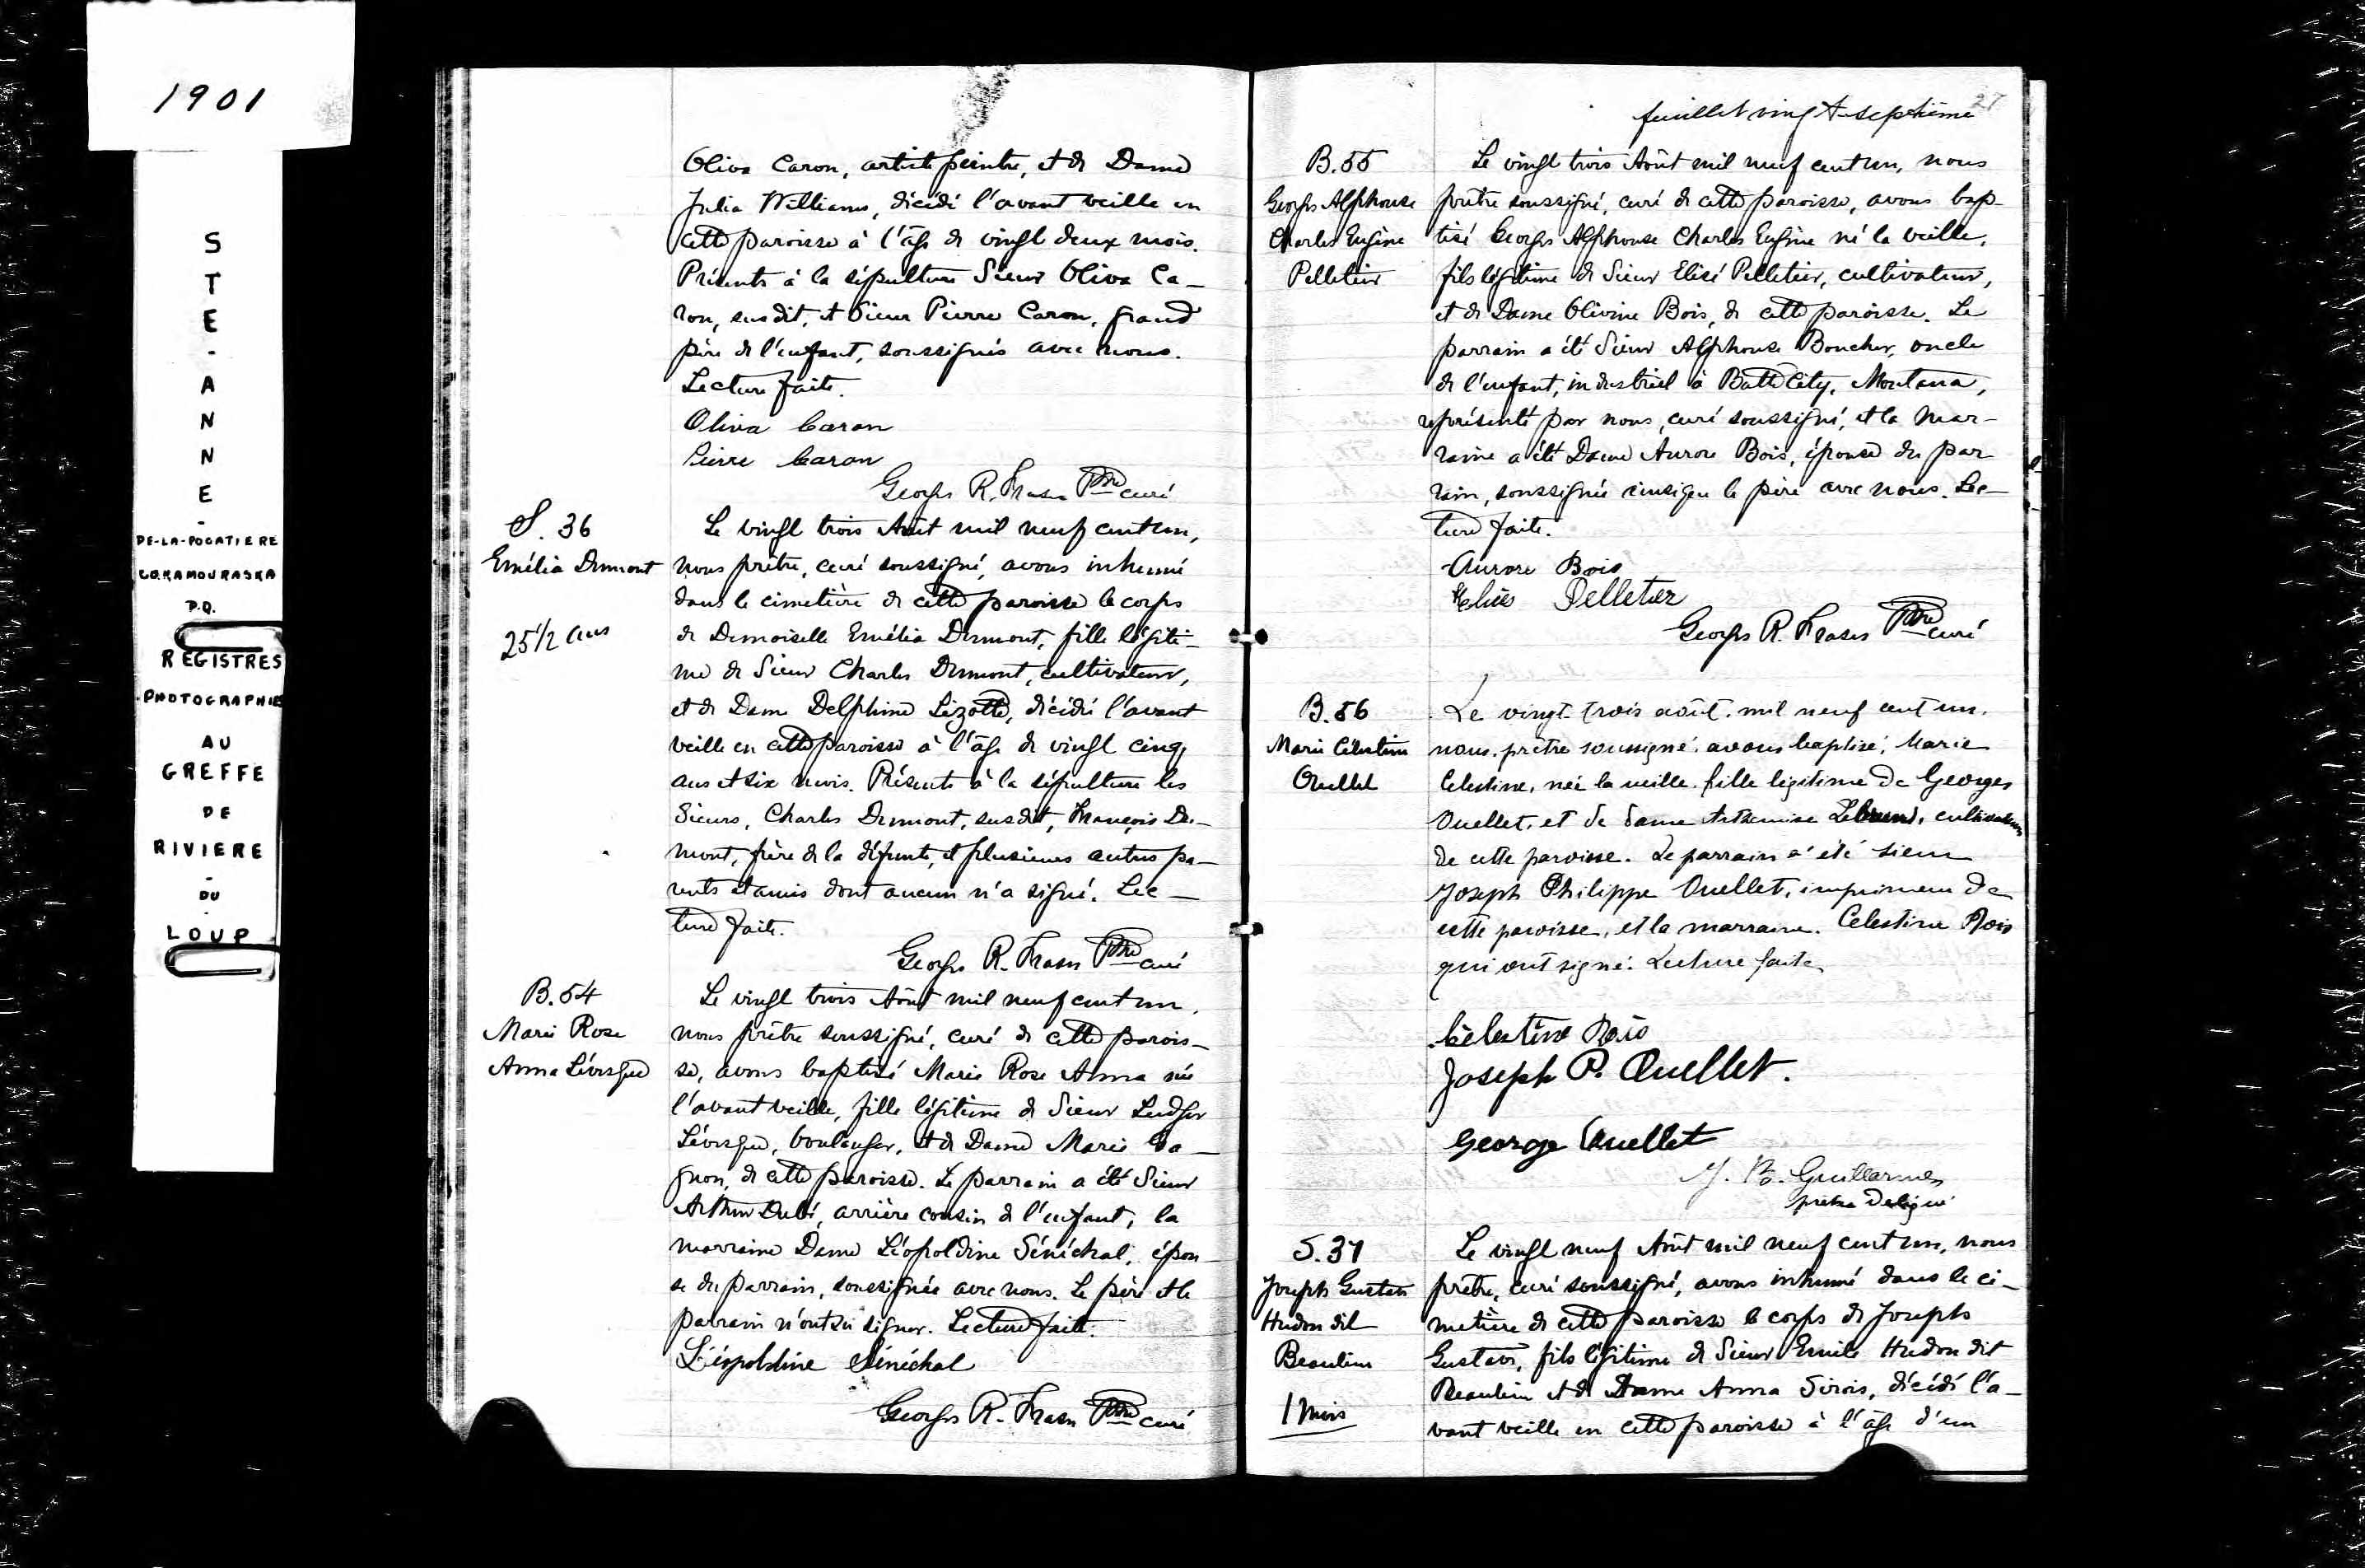 1901
STE-ANNE-
DE-LA-POCATIERE
CO. KAMOURASKA
P.Q.
REGISTRES
PHOTOGRAPHIE
AU
GREFFE
DE
RIVIERE
-
DU
-
LOUP
Oliva Caron, artiste peintre, et de Dame
Julia Williams, décédé l'avant veille en
cette paroisse à l'âge de vingt deux mois.
Présents à la sépulture Sieur Oliva Ca-
ron, susdit, et Sieur Pierre Caron, grand
père de l'enfant, soussignés avec nous.
Lecture faite.
Oliva Caron
Pierre Caron
Georges R. Fraser Ptre curé
S. 36
Emélia Dumont
25 1/2 ans
Le vingt trois Août mil neuf cent un,
nous prêtre, curé soussigné, avons inhumé
dans le cimetière de cette paroisse le corps
de Demoiselle Emélia Dumont, fille légiti-
me de Sieur Charles Dumont, cultivateur,
et de Dame Delphine Lizotte, décédée l'avant
veille en cette paroisse à l'âge de vingt cinq
ans et six mois. Présents à la sépulture les
Sieurs, Charles Dumont, susdit, François Du-
mont, frère de la défunte, et plusieurs autres pa-
rents et amis dont aucun n'a signé. Lec-
ture faite.
Georges R. Fraser Ptre curé
B. 54
Marie Rose
Anna Lévesque
Le vingt trois Août mil neuf cent un,
nous prêtre soussigné, curé de cette parois-
se, avons baptisé Marie Rose Anna née
l'avant veille, fille légitime de Sieur Ludger
Lévesque, boulanger, et de Dame Marie Ga-
gnon, de cette paroisse. Le parrain a été Sieur
Arthur Dubé, arrière cousin de l'enfant, la
marraine Dame Léopoldine Sénéchal, épou-
se du parrain, soussignée avec nous. Le père et le
parrain n'ont su signer. Lecture faite.
Léopoldine Sénéchal
Georges R. Fraser Ptre curé
27
feuillet vingt-septième
B. 55
Georges Alphonse
Charles Eugène
Pelletier
Le vingt trois Août mil neuf cent un, nous
prêtre soussigné, curé de cette paroisse, avons bap-
tisé Georges Alphonse Charles Eugène né la veille,
fils légitime de Sieur Elisé Pelletier, cultivateur,
et de Dame Olivine Bois, de cette paroisse. Le
parrain a été Sieur Alphonse Boucher, oncle
de l'enfant, industriel à Butte City, Montana,
représenté par nous, curé soussigné, et la mar-
raine a été Dame Aurore Bois, épouse du par
rain, soussignée ainsi que le père avec nous. Lec-
ture faite.
Aurore Bois
Pelletier
Georges R. Fraser Ptre curé
B. 56
Marie Célestine
Ouellet
Le vingt-trois août mil neuf cent un.
nous prêtre soussigné avons baptisé, Marie
Celestine, née la veille, fille légitime de Georges
Ouellet, et de dame Arthemise Lebrund, cultivateur
de cette paroisse. Le parrain a été Sieur
Joseph Philippe Ouellet, imprimeur de
cette paroisse, et la marraine. Celestine Rois
qui ont signé. Lecture faite
Célestine Rois
Joseph P. Ouellet.
George Ouellet
J. B. Guillarmes
prêtre délégué
S. 37
Joseph Gustave
Hudon dit
Beaulieu
1 mois
Le vingt neuf Août mil neuf cent un, nous
prêtre, curé soussigné, avons inhumé dans le ci-
metière de cette paroisse le corps de Joseph
Gustave, fils légitime de Sieur Emile Hudon dit
Beaulieu et de Dame Anna Sirois, décédé l'a-
vant veille en cette paroisse à l'âge d'un